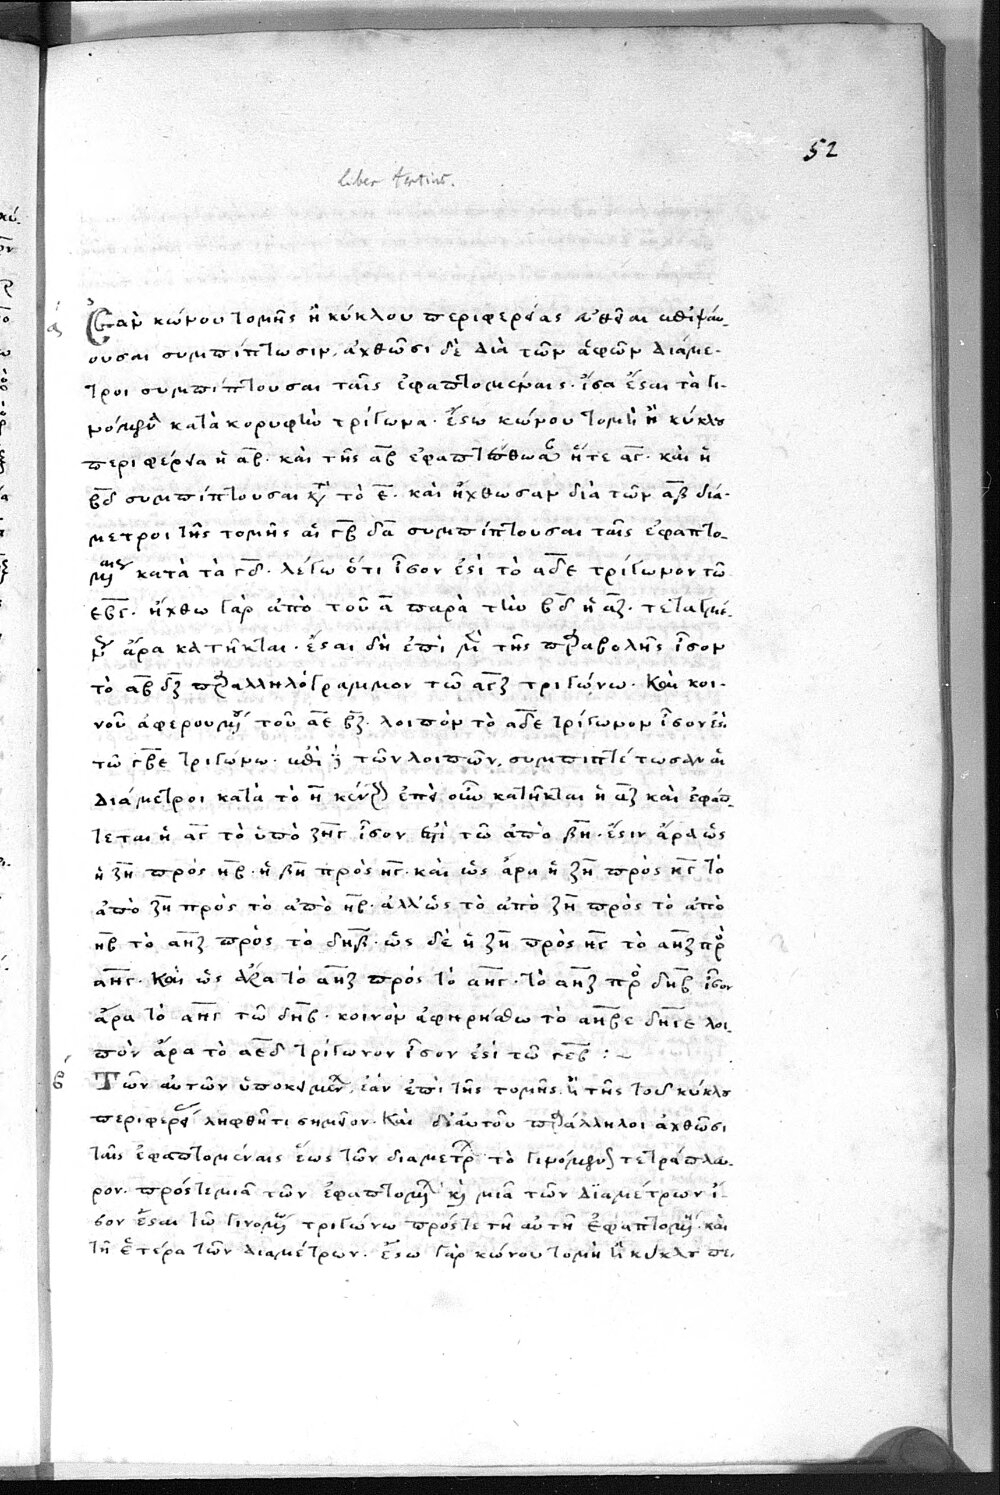 52
Liber tertius.
α Ἐὰν κώνου τομῆς ἢ κύκλου περιφερείας εὐθεῖαι ἐπιψαύ-
ουσαι συμπίπτωσιν, ἀχθῶσι δὲ διὰ τῶν ἁφῶν διάμε-
τροι συμπίπτουσαι ταῖς ἐφαπτομέναις· ἴσα ἔσται τὰ γι-
νόμενα κατὰ κορυφὴν τρίγωνα· ἔστω κώνου τομὴ ἢ κύκλου
περιφέρεια ἡ αβ· καὶ τῆς αβ ἐφαπτέσθωσαν ἥτε αγ· καὶ ἡ
βδ συμπίπτουσαι κατὰ τὸ ε· καὶ ἤχθωσαν διὰ τῶν αβ διά-
μετροι τῆς τομῆς αἱ γβ δα συμπίπτουσαι ταῖς ἐφαπτο-
μέναις κατὰ τὰ γδ· λέγω ὅτι ἴσον ἐστὶ τὸ αδε τρίγωνον τῶ
εβγ· ἤχθω γὰρ ἀπὸ τοῦ α παρὰ τὴν βδ ἡ αζ· τεταγμέ-
νως ἄρα κατῆκται· ἔσται δὴ ἐπὶ μὲν τῆς παραβολῆς ἴσον
τὸ αβδζ παραλληλόγραμμον τῶ αγζ τριγώνω· Καὶ κοι-
νοῦ ἀφερουμένου τοῦ αεβζ· λοιπὸν τὸ αδε τρίγωνον ἴσον ἐστὶ
τῶ γβε τριγώνω· ἐπὶ δὲ τῶν λοιπῶν, συμπιπτέτωσαν αἱ
διάμετροι κατὰ τὸ η κέντρον ἐπεὶ οὖν κατῆκται ἡ αζ καὶ ἐφάπ-
τεται ἡ αγ τὸ ὑπὸ ζηγ ἴσον ἐστὶ τῶ ἀπὸ βη· ἔστιν ἄρα ὡς
ἡ ζη πρὸς ηβ· ἡ βη πρὸς ηγ· καὶ ὡς ἄρα ἡ ζη πρὸς ηγ τὸ
ἀπὸ ζη πρὸς τὸ ἀπὸ ηβ· ἀλλ' ὡς τὸ ἀπὸ ζη πρὸς τὸ ἀπὸ
ηβ τὸ αηζ πρὸς τὸ δηβ· ὡς δὲ ἡ ζη πρὸς ηγ τὸ αηζ πρὸς
αηγ· Καὶ ὡς ἄρα τὸ αηζ πρὸς τὸ αηγ· τὸ αηζ πρὸς δηβ ἴσον
ἄρα τὸ αηγ τῶ δηβ· κοινὸν ἀφηρήσθω τὸ δηγε λοι-
πὸν ἄρα τὸ αεδ τρίγωνον ἴσον ἐστὶ τῶ γεβ :~
β Τῶν αὐτῶν ὑποκειμένων, ἐὰν ἐπὶ τῆς τομῆς ἢ τῆς τοῦ κύκλου
περιφερείας ληφθῆ τι σημεῖον· Καὶ δι' αὐτοῦ παράλληλοι ἀχθῶσι
ταῖς ἐφαπτομέναις ἕως τῶν διαμέτρων τὸ γινόμενον τετράπλευ-
ρον πρός τε μιᾶ τῶν ἐφαπτομένων καὶ μιᾶ τῶν διαμέτρων ἴ-
σον ἔσται τῶ γινομένω τριγώνω πρός τε τῆ αὐτῆ ἐφαπτομένη· καὶ
τῆ ἑτέρα τῶν διαμέτρων· ἔστω γὰρ κώνου τομὴ ἢ κύκλου πε-